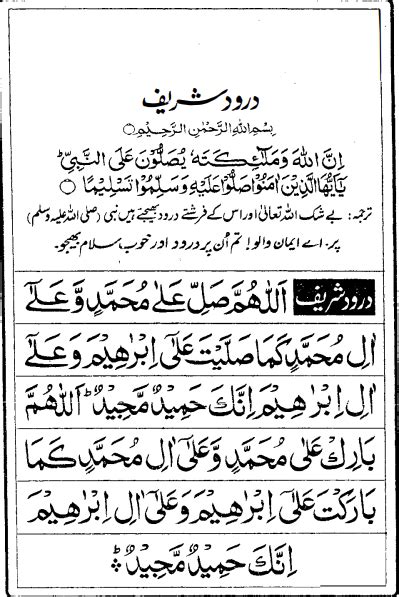 درود شریف
بِسْمِ اللهِ الرَّحْمٰنِ الرَّحِيْمِ ○
اِنَّ اللهَ وَمَلٰٓئِكَتَهٗ يُصَلُّوْنَ عَلَى النَّبِيِّ ؕ
يٰٓاَيُّهَا الَّذِيْنَ اٰمَنُوْا صَلُّوْا عَلَيْهِ وَسَلِّمُوْا تَسْلِيْمًا ○
ترجمہ: بے شک اللہ تعالیٰ اور اس کے فرشتے درود بھیجتے ہیں نبی (صلی اللہ علیہ وسلم)
پر۔ اے ایمان والو! تم اُن پر درود اور خوب سلام بھیجو۔
درود شریف اَللّٰهُمَّ صَلِّ عَلٰى مُحَمَّدٍ وَّعَلٰٓى
اٰلِ مُحَمَّدٍ كَمَا صَلَّيْتَ عَلٰٓى اِبْرٰهِيْمَ وَعَلٰٓى
اٰلِ اِبْرٰهِيْمَ اِنَّكَ حَمِيْدٌ مَّجِيْدٌ ؕ اَللّٰهُمَّ
بَارِكْ عَلٰى مُحَمَّدٍ وَّعَلٰٓى اٰلِ مُحَمَّدٍ كَمَا
بَارَكْتَ عَلٰٓى اِبْرٰهِيْمَ وَعَلٰٓى اٰلِ اِبْرٰهِيْمَ
اِنَّكَ حَمِيْدٌ مَّجِيْدٌ ؕ